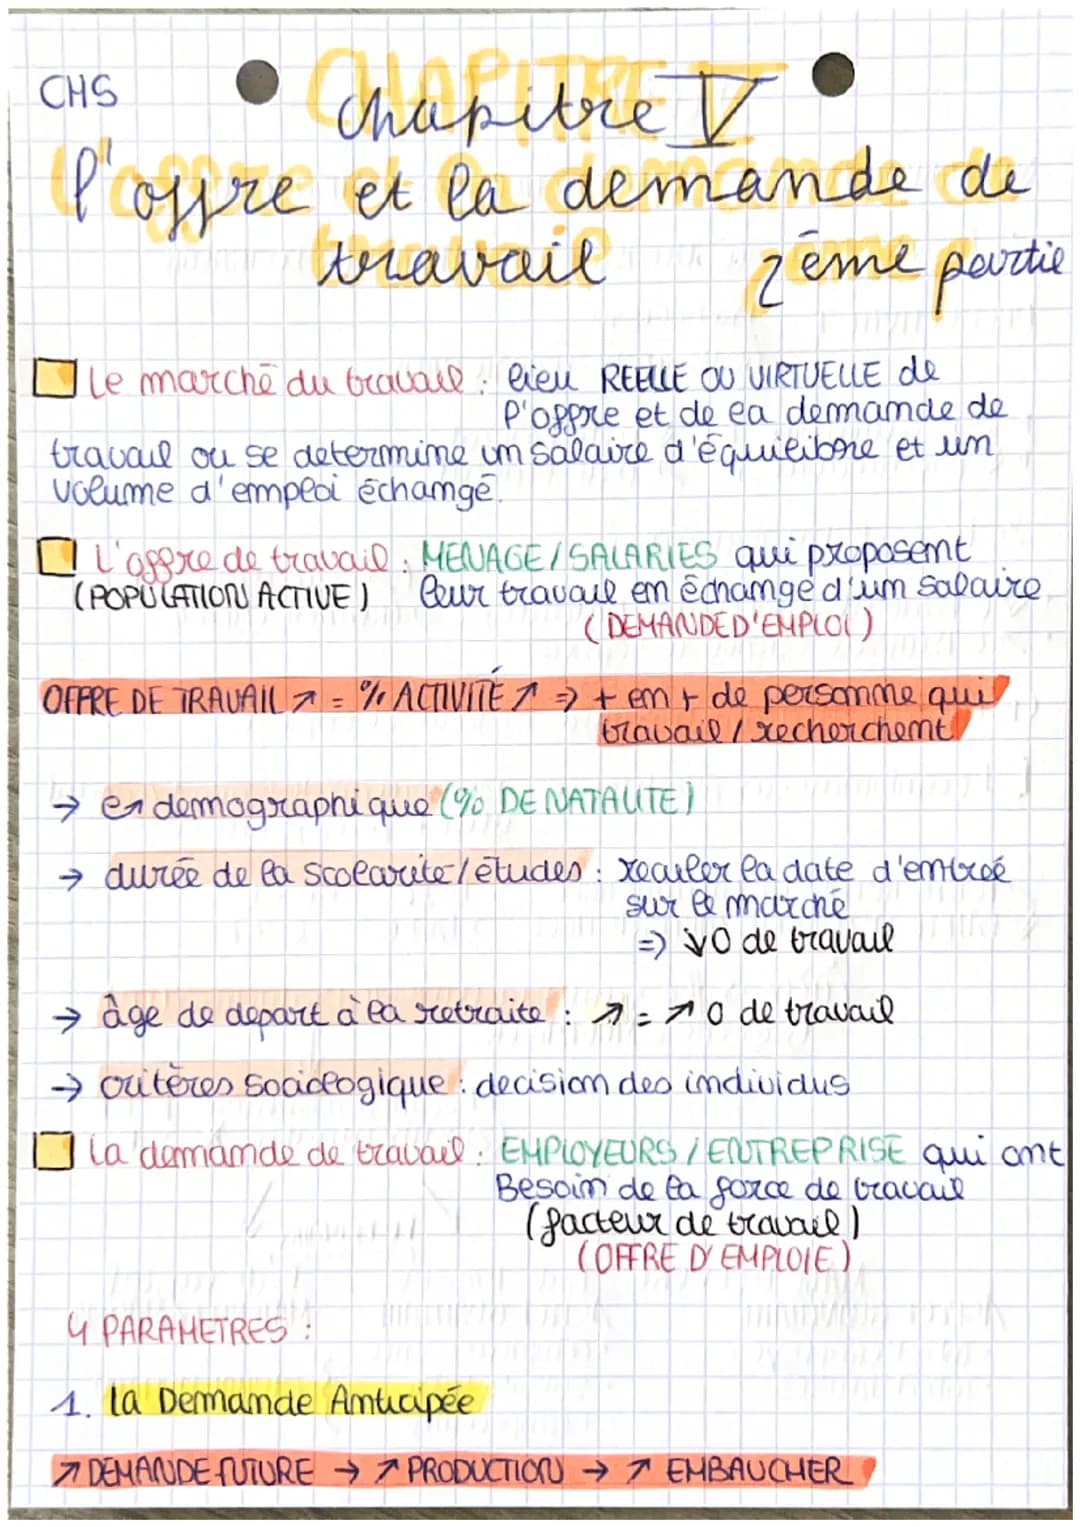 CHS
CHAPITRE
Chapitre V
l'offre et la demande de
travail 2ème partie
Le marché du travail : lieu REELLE OU VIRTUELLE de
l'offre et de la demande de
travail ou se determine un salaire d'équilibre et un
volume d'emploi échangé.
L'offre de travail : MENAGE/SALARIES qui proposent
(POPULATION ACTIVE) leur travail en échange d'um salaire
(DEMANDE D'EMPLOI)
OFFRE DE TRAVAIL ↗ = % ACTIVITÉ ↗ => + en + de personne qui
travail / recherchent
→ demographique (% DE NATALITE)
→ durée de la scolarité/études : reculer la date d'entreé
sur le marché
=> ↓O de travail
→ âge de depart à la retraite : ↗ = ↗ O de travail
→ critères sociologique : decision des individus
La demande de travail : EMPLOYEURS / ENTREPRISE qui ont
Besoin de la force de travail
(facteur de travail)
(OFFRE D'EMPLOIE)
4 PARAMETRES :
1. la Demande Anticipée
↗ DEMANDE FUTURE → ↗ PRODUCTION → ↗ EMBAUCHER